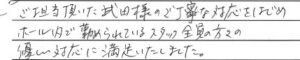 ご担当頂いた武田様のご丁寧な対応をはじめ
ホール内で勤められているスタッフ全員の方々の
優しい対応に満足いたしました。